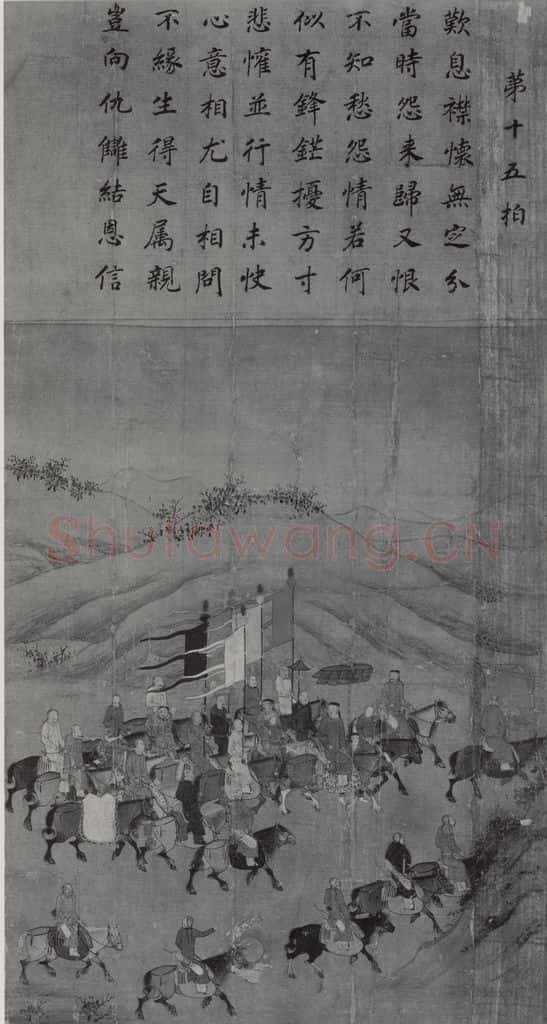 第十五拍
歎息襟懷無定分
當時怨来歸又恨
不知愁怨情若何
似有鋒鋩擾方寸
悲懽並行情未快
心意相尤自相問
不緣生得天属親
豈向仇讎結恩信
Shufawang.CN